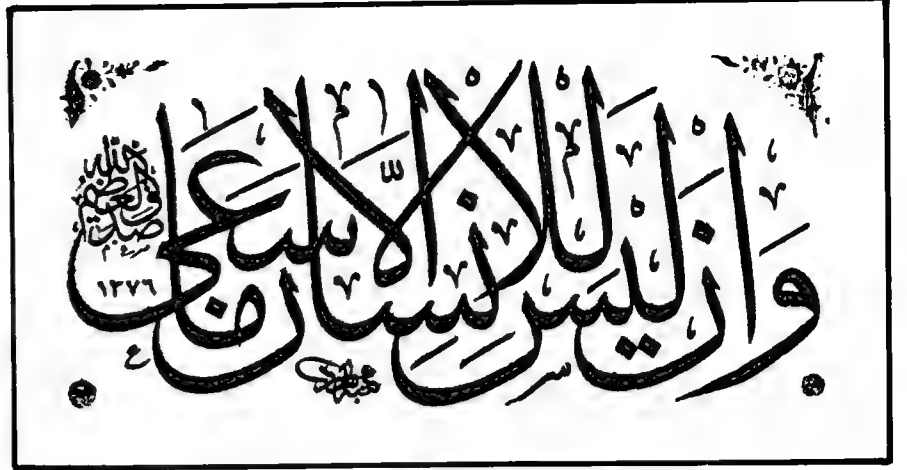 وَأَن لَّيْسَ لِلْإِنسَانِ إِلَّا مَا سَعَى
صدق الله العظيم
١٣٧٦